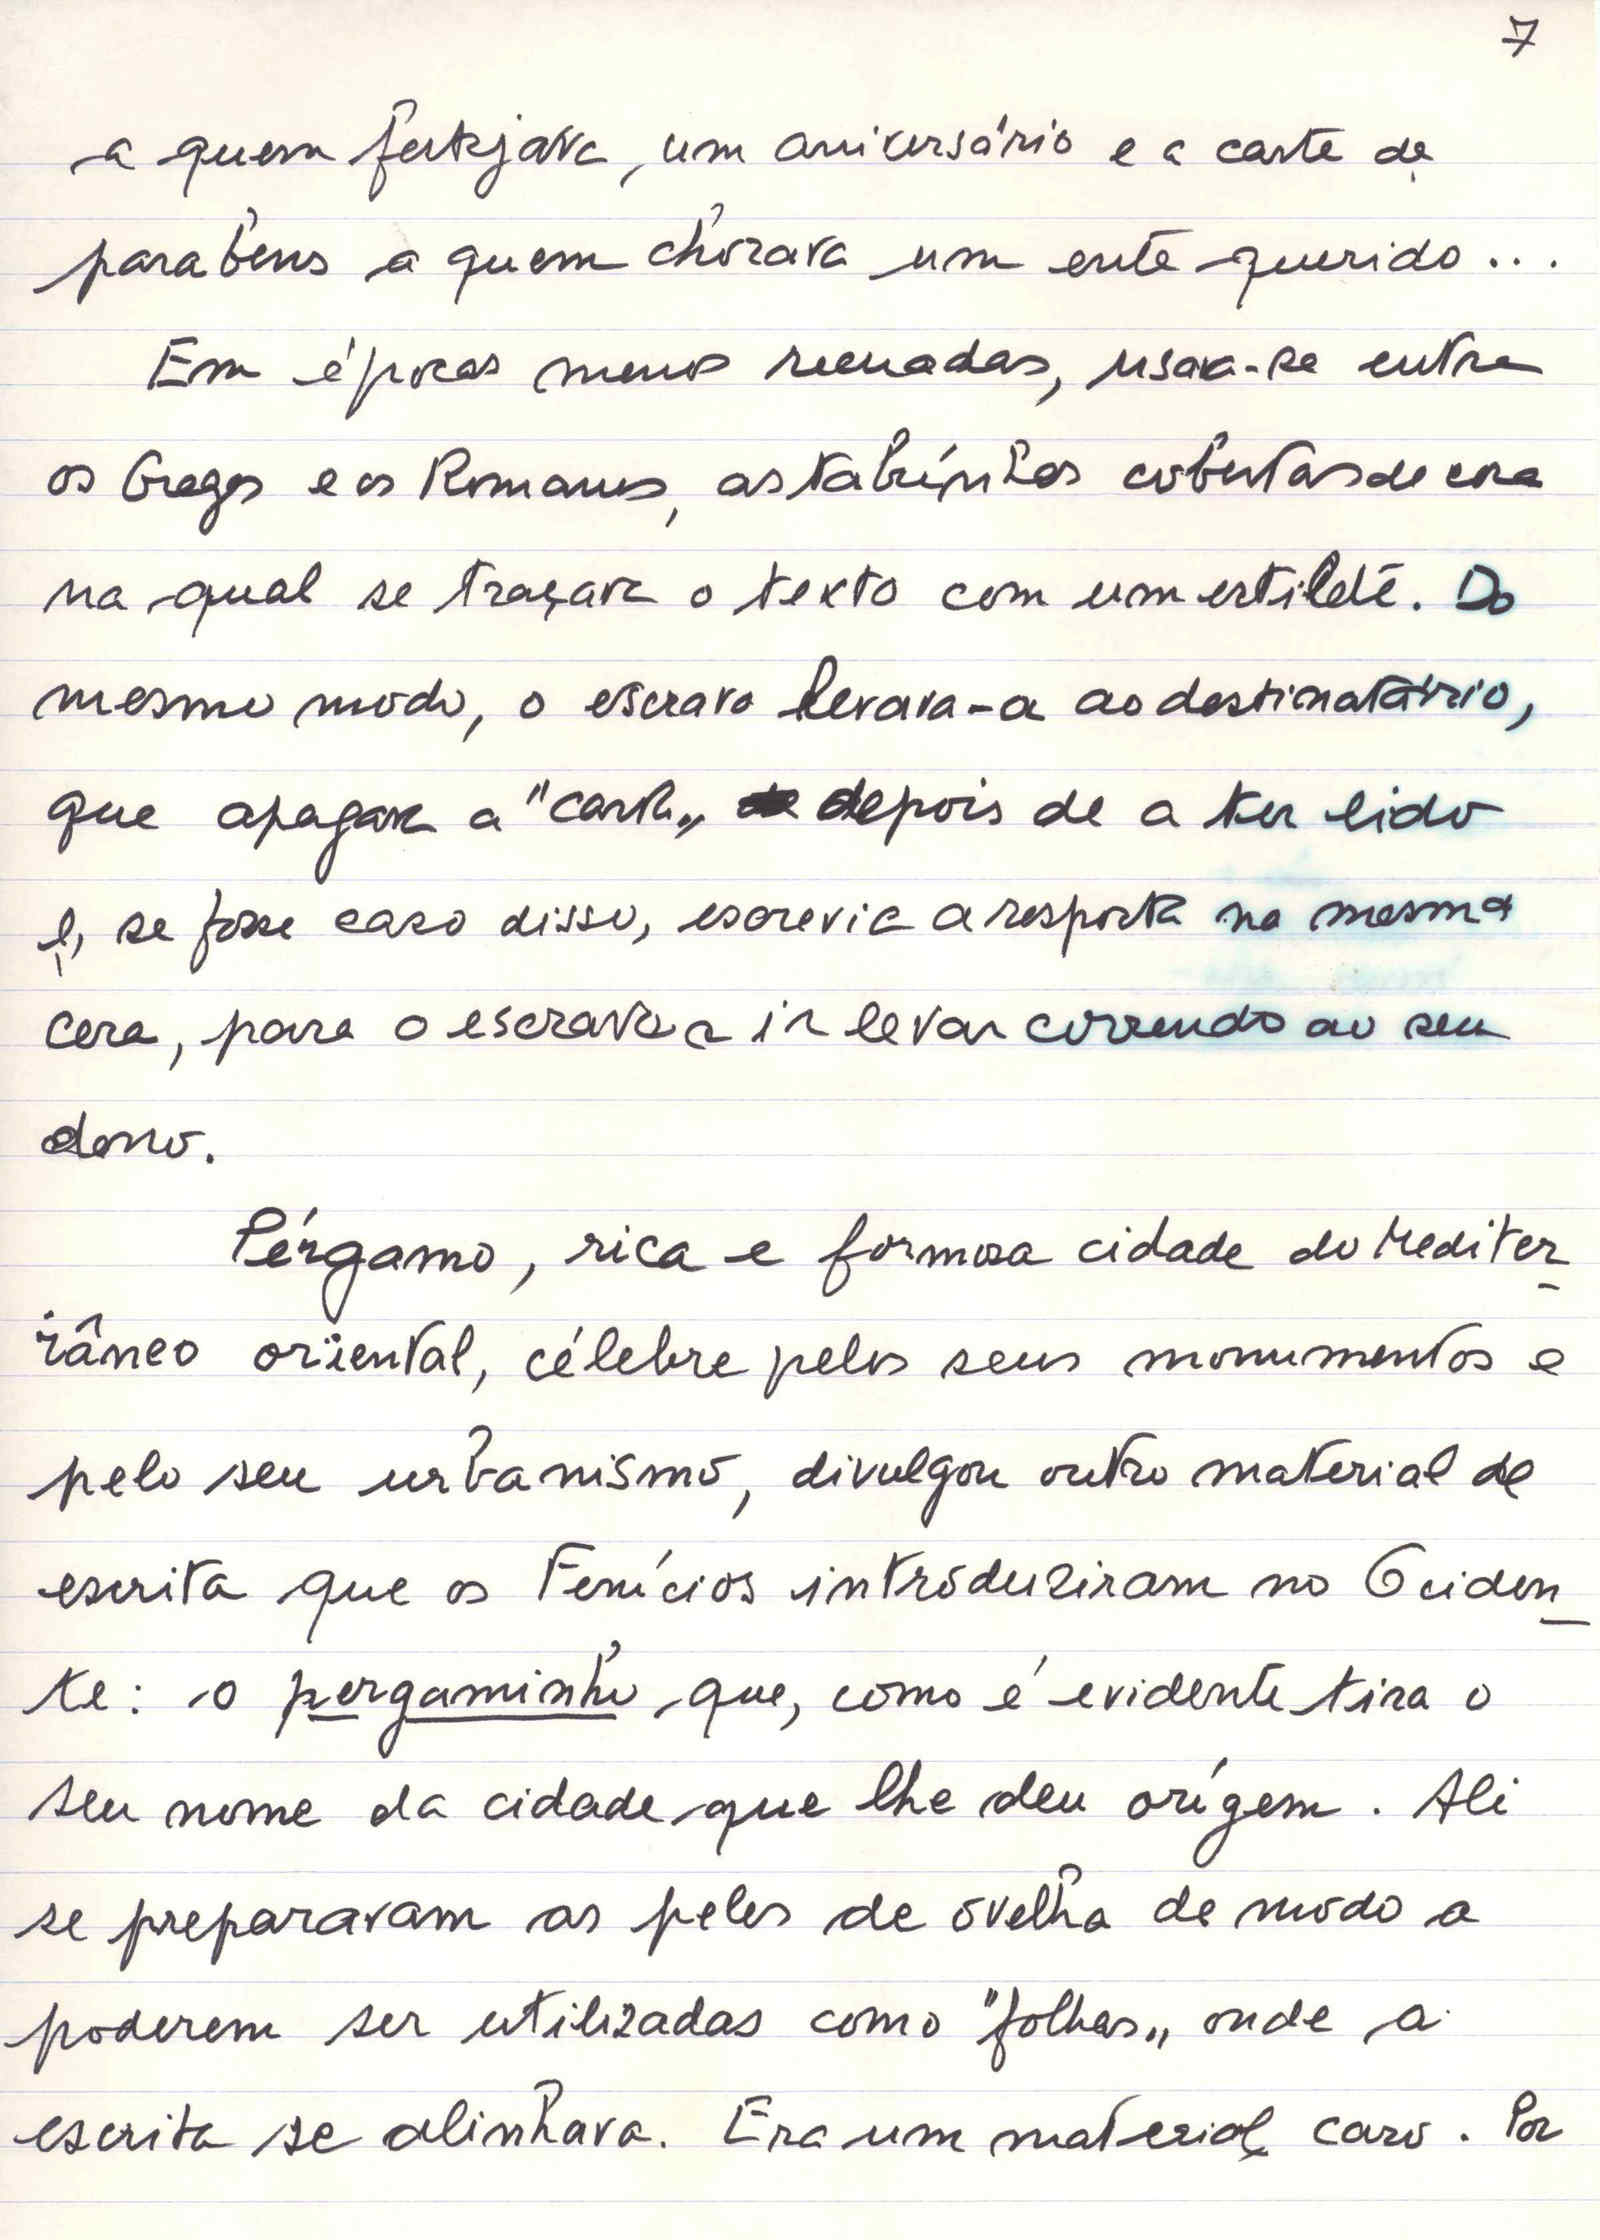 7
a quem festejava um aniversário e a carta de
parabéns a quem chorava um ente querido...
Em épocas menos recuadas, usava-se entre
os Gregos e os Romanos, as tabuínhas cobertas de cera
na qual se traçava o texto com um estilete. Do
mesmo modo, o escravo levava-a ao destinatário,
que apagava a "carta„ depois de a ter lido
e, se fosse caso disso, escrevia a resposta na mesma
cera, para o escravo a ir levar correndo ao seu
dono.
Pérgamo, rica e formosa cidade do Mediter-
râneo oriental, célebre pelos seus monumentos e
pelo seu urbanismo, divulgou outro material de
escrita que os Fenícios introduziram no Ociden-
te: o pergaminho que, como é evidente tira o
seu nome da cidade que lhe deu orígem. Ali
se preparavam as peles de ovelha de modo a
poderem ser utilizadas como "folhas„ onde a
escrita se alinhava. Era um material caro. Por